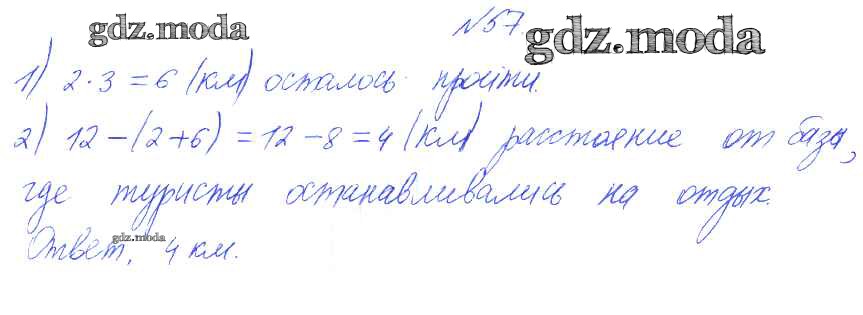 gdz.moda №57. gdz.moda
1) 2·3=6 (км) осталось пройти.
2) 12-(2+6)=12-8=4 (км) расстояние от базы,
где туристы останавливались на отдых.
gdz.moda
Ответ, 4 км.